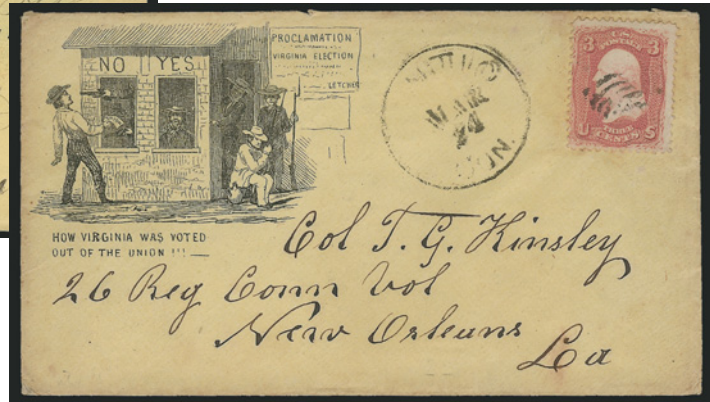 PROCLAMATION
VIRGINIA ELECTION
LETCHER
NO YES
HOW VIRGINIA WAS VOTED
OUT OF THE UNION !!! —
MAR
24
3 U.S. POSTAGE 3
U THREE CENTS S
Col T. G. Kinsley
26 Reg Conn Vol
New Orleans
La